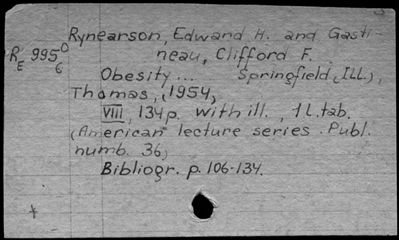 Rynearson, Edward H. and Gasti-
R 995 0
E 6
neau, Clifford F.
Obesity ... Springfield (Ill.),
Thomas, (1954)
VIII, 134 p. with ill., 1 l. tab.
(American lecture series. Publ.
numb. 36)
Bibliogr. p. 106-134.